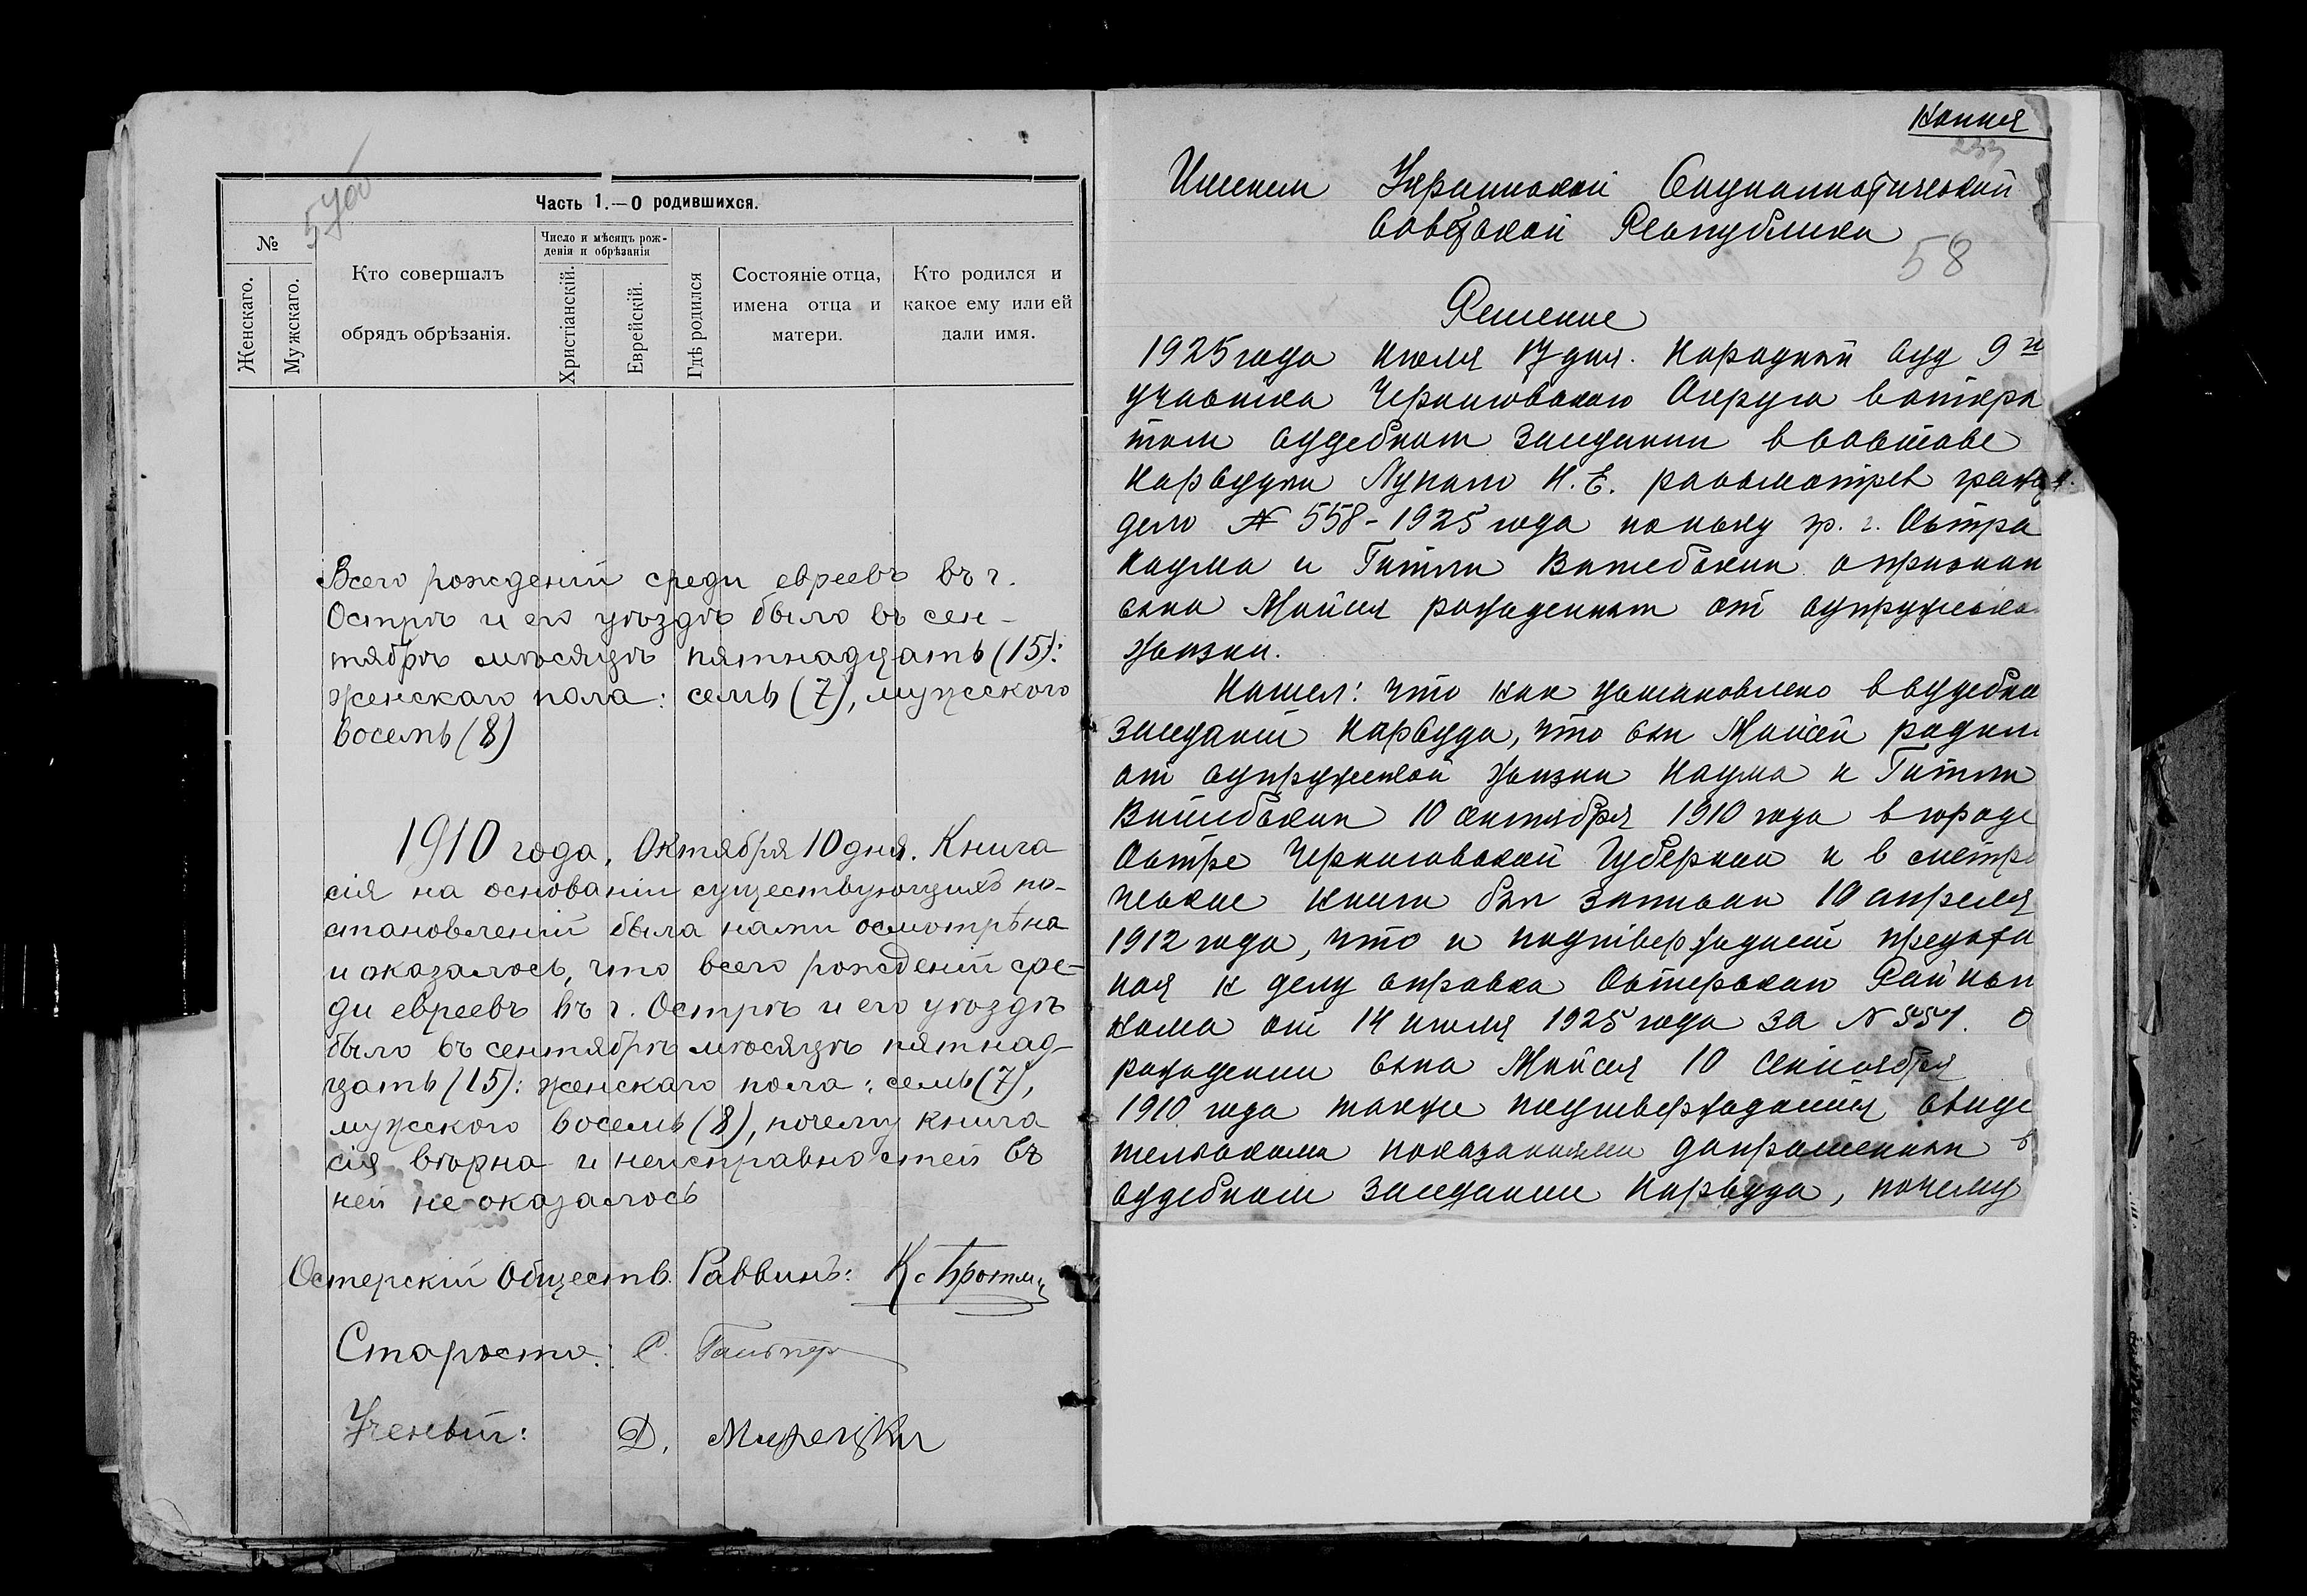 Часть 1.—О родившихся.
№
Женскаго.
Мужскаго.
Кто совершалъ
обрядъ обрѣзанія.
Число и мѣсяцъ рож-
денія и обрѣзанія
Христіанскій.
Еврейскій.
Гдѣ родился
Состояніе отца,
имена отца и
матери.
Кто родился и
какое ему или ей
дали имя.
Всего рожденій среди евреевъ въ г.
Острѣ и его уѣздѣ было въ сен-
тябрѣ мѣсяцѣ пятнадцать (15):
женскаго пола: семь (7), мужского
восемь (8)
1910 года, Октября 10 дня. Книга
сія на основаніи существующихъ по-
становленій была нами осмотрѣна
и оказалось, что всего рожденій сре-
ди евреевъ въ г. Острѣ и его уѣздѣ
было въ сентябрѣ мѣсяцѣ пятнад-
цать (15): женскаго пола: семь (7),
мужского восемь (8), почему книга
сія вѣрна и неисправностей въ
ней не оказалось
Остерскій Обществ. Раввинъ:
Староста: С.
Ученый: Д.
Копия
Именем Украинской Социалистической
Советской Республики
58
Решение
1925 года июля 17 дня. Народный Суд 9 го
участка Черниговского Округа в откры
том судебном заседании в составе
Нарсудьи И. Е. рассмотрев гражд.
дело № 558-1925 года по иску гр. г. Остра
Наума и Гитли Витебских о признан
сына Мойсея рожденным от супружеско
жизни.
Нашел: что как установлено в судебно
заседании Нарсуда, что сын Мойсей родил
от супружеской жизни Наума и Гитли
Витебских 10 сентября 1910 года в городе
Остре Черниговской Губернии и в метри
ческие книги был записан 10 апреля
1912 года, что и подтверждает
ная к делу справка Остерским Рай исп
кома от 14 июля 1925 года за № 551. О
рождении сына Мойсея 10 Сентября
1910 года также подтверждается свиде
тельскими показаниями допрошенных в
судебном заседании Нарсуда, почему